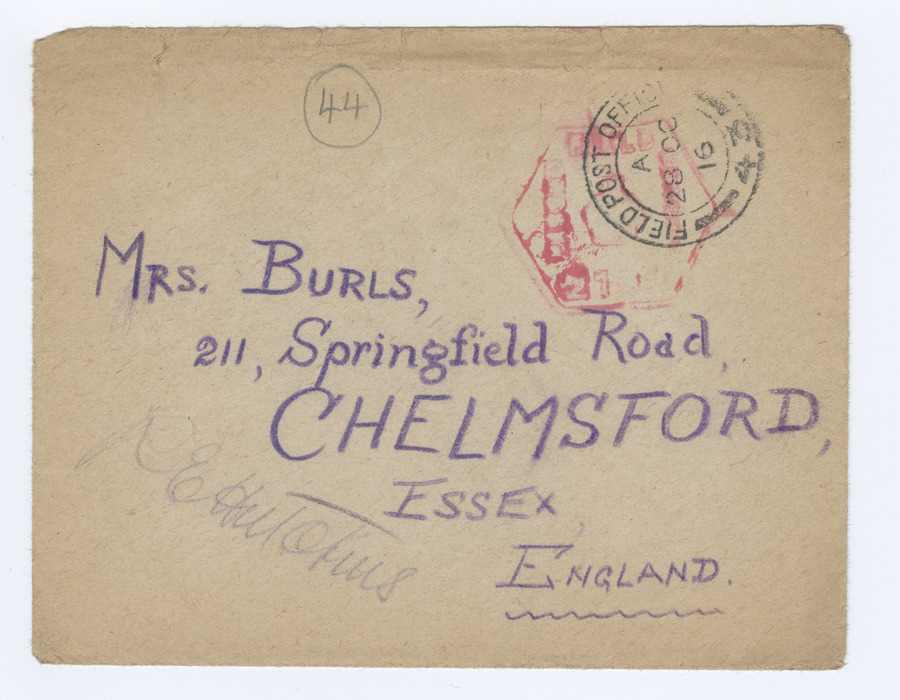 44
FIELD POST OFFICE
43
A
28 OC
16
Mrs. Burls,
211, Springfield Road,
CHELMSFORD,
Essex,
England.